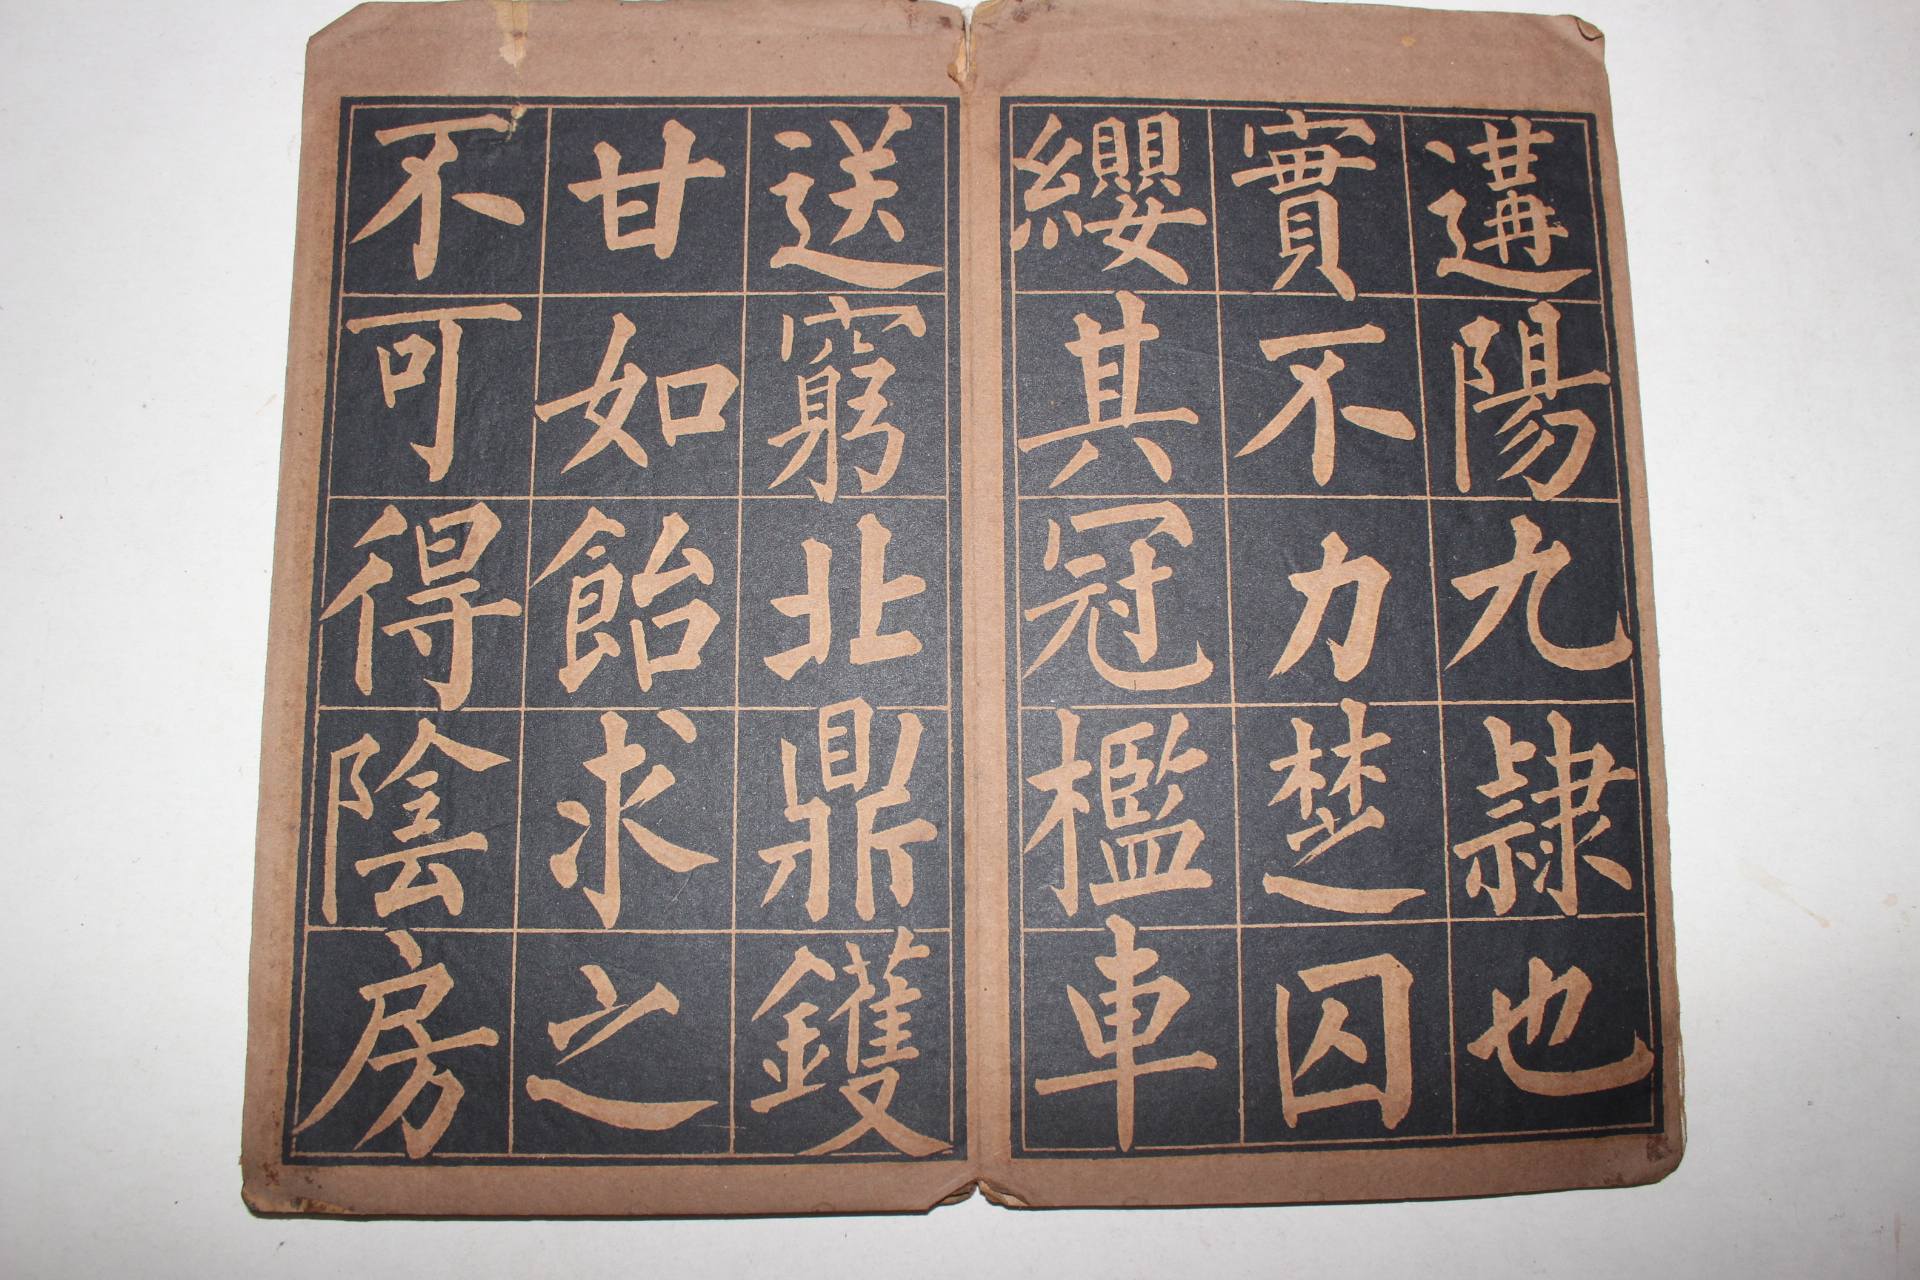 遘陽九隸也
實不力楚囚
纓其冠檻車
送窮北鼎鑊
甘如飴求之
不可得陰房